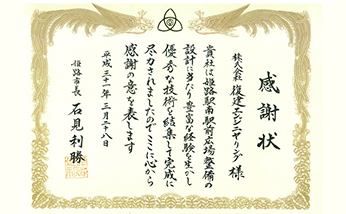 感謝状
株式会社 復建エンジニヤリング 様
貴社は姫路駅南駅前広場整備の
設計に当たり豊富な経験を生かし
優秀な技術を結集して完成に
尽力されましたのでここに心から
感謝の意を表します
平成三十一年三月二十八日
姫路市長 石見利勝